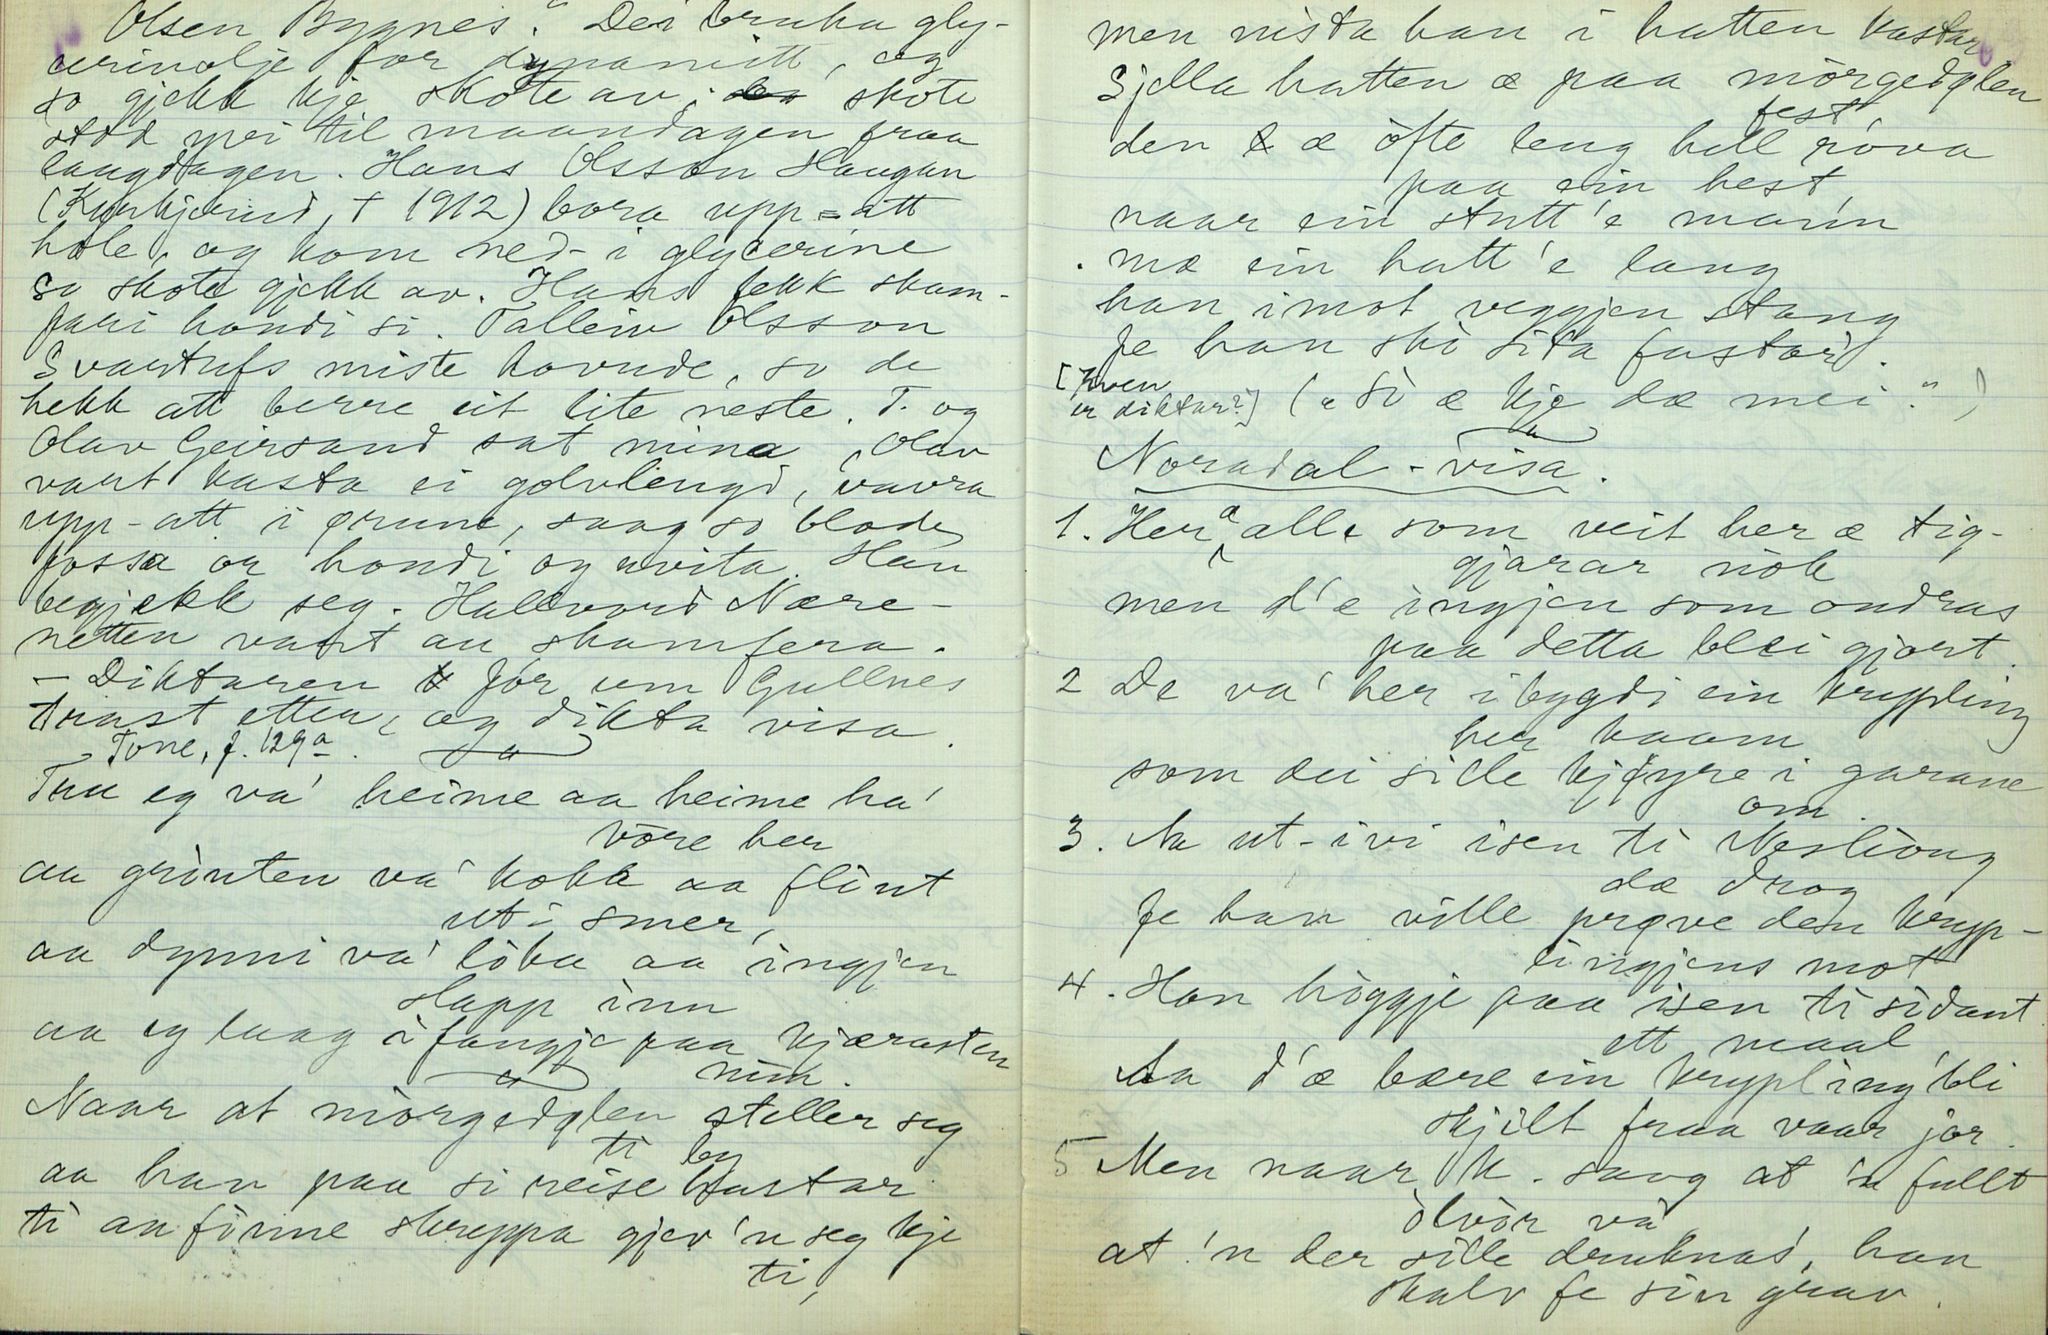 Olsen Bygnes." Dei bruka gly-
cerinolje for dynamitt, og
so gjekk kje skote av; skote
stod yvi til maandagen fraa
laugdagen. Hans Olsson Haugan
(Kyrkjerud, † 1912) bora upp-att
hole, og kom ned-i glycerine
so skote gjekk av. Hans fekk skam-
fari hondi si. Talleiv Olsson
Svartufs miste hovude, so de
hekk att berre eit lite neste. T. og
Olav Geirsand sat mina, Olav
vart kasta ei golvlengd, vavra
upp-att i ørune, saag so blode
fossa or hondi og uvita. Han
begjekk seg. Hallvord Nære-
netten vart au skamfera.
- Diktaren før um Gullnes
trast etter, og dikta visa.
- Tone, f. 129a.
Trur eg va' heime aa heime ha'
vòre her
aa grìnten va' kokk aa flìnt
uti smer,
aa dynni va' lòka aa ingjen
slapp inn
aa eg laag i fangje paa kjærasten
min.
Naar at mòrgedølen steller seg
ti by
aa han paa si reise hastar
ti aa finne skreppa gjev 'n seg kje
ti,
men nista han i hatten kastar
Sjella hatten æ paa mòrgedølen
fest
den æ òfte leng hell ròva
paa ein hest
naar ein stutt 'e mann
mæ ein hatt 'e lang
han imot veggjen stang
fe han ski sita fastar.
[Kven
er diktar?] („Sì æ kje dæ mei.")
Noradal-visa.
1. Her æ alle som veit her æ tig-
gjarar nòk
men d'æ ingjen som ondras
paa detta blei gjort.
2 De va' her i bygdi ein krypling
her kaam
som dei sille kjøyre i garane
om.
3. Aa ut-ivi isen ti Neslìòng
dæ drog
fe han ville prøve den kryp-
lingjens mot
4. Han hòggje paa isen ti sidant
ett maal
Aa d'æ bære ein krypling bli
skjilt fraa vaar jor.
5 Men naar K. saag at 'n fullt
òlvòr va'
at 'n der sille druknas, han
skalv fe sin grav.